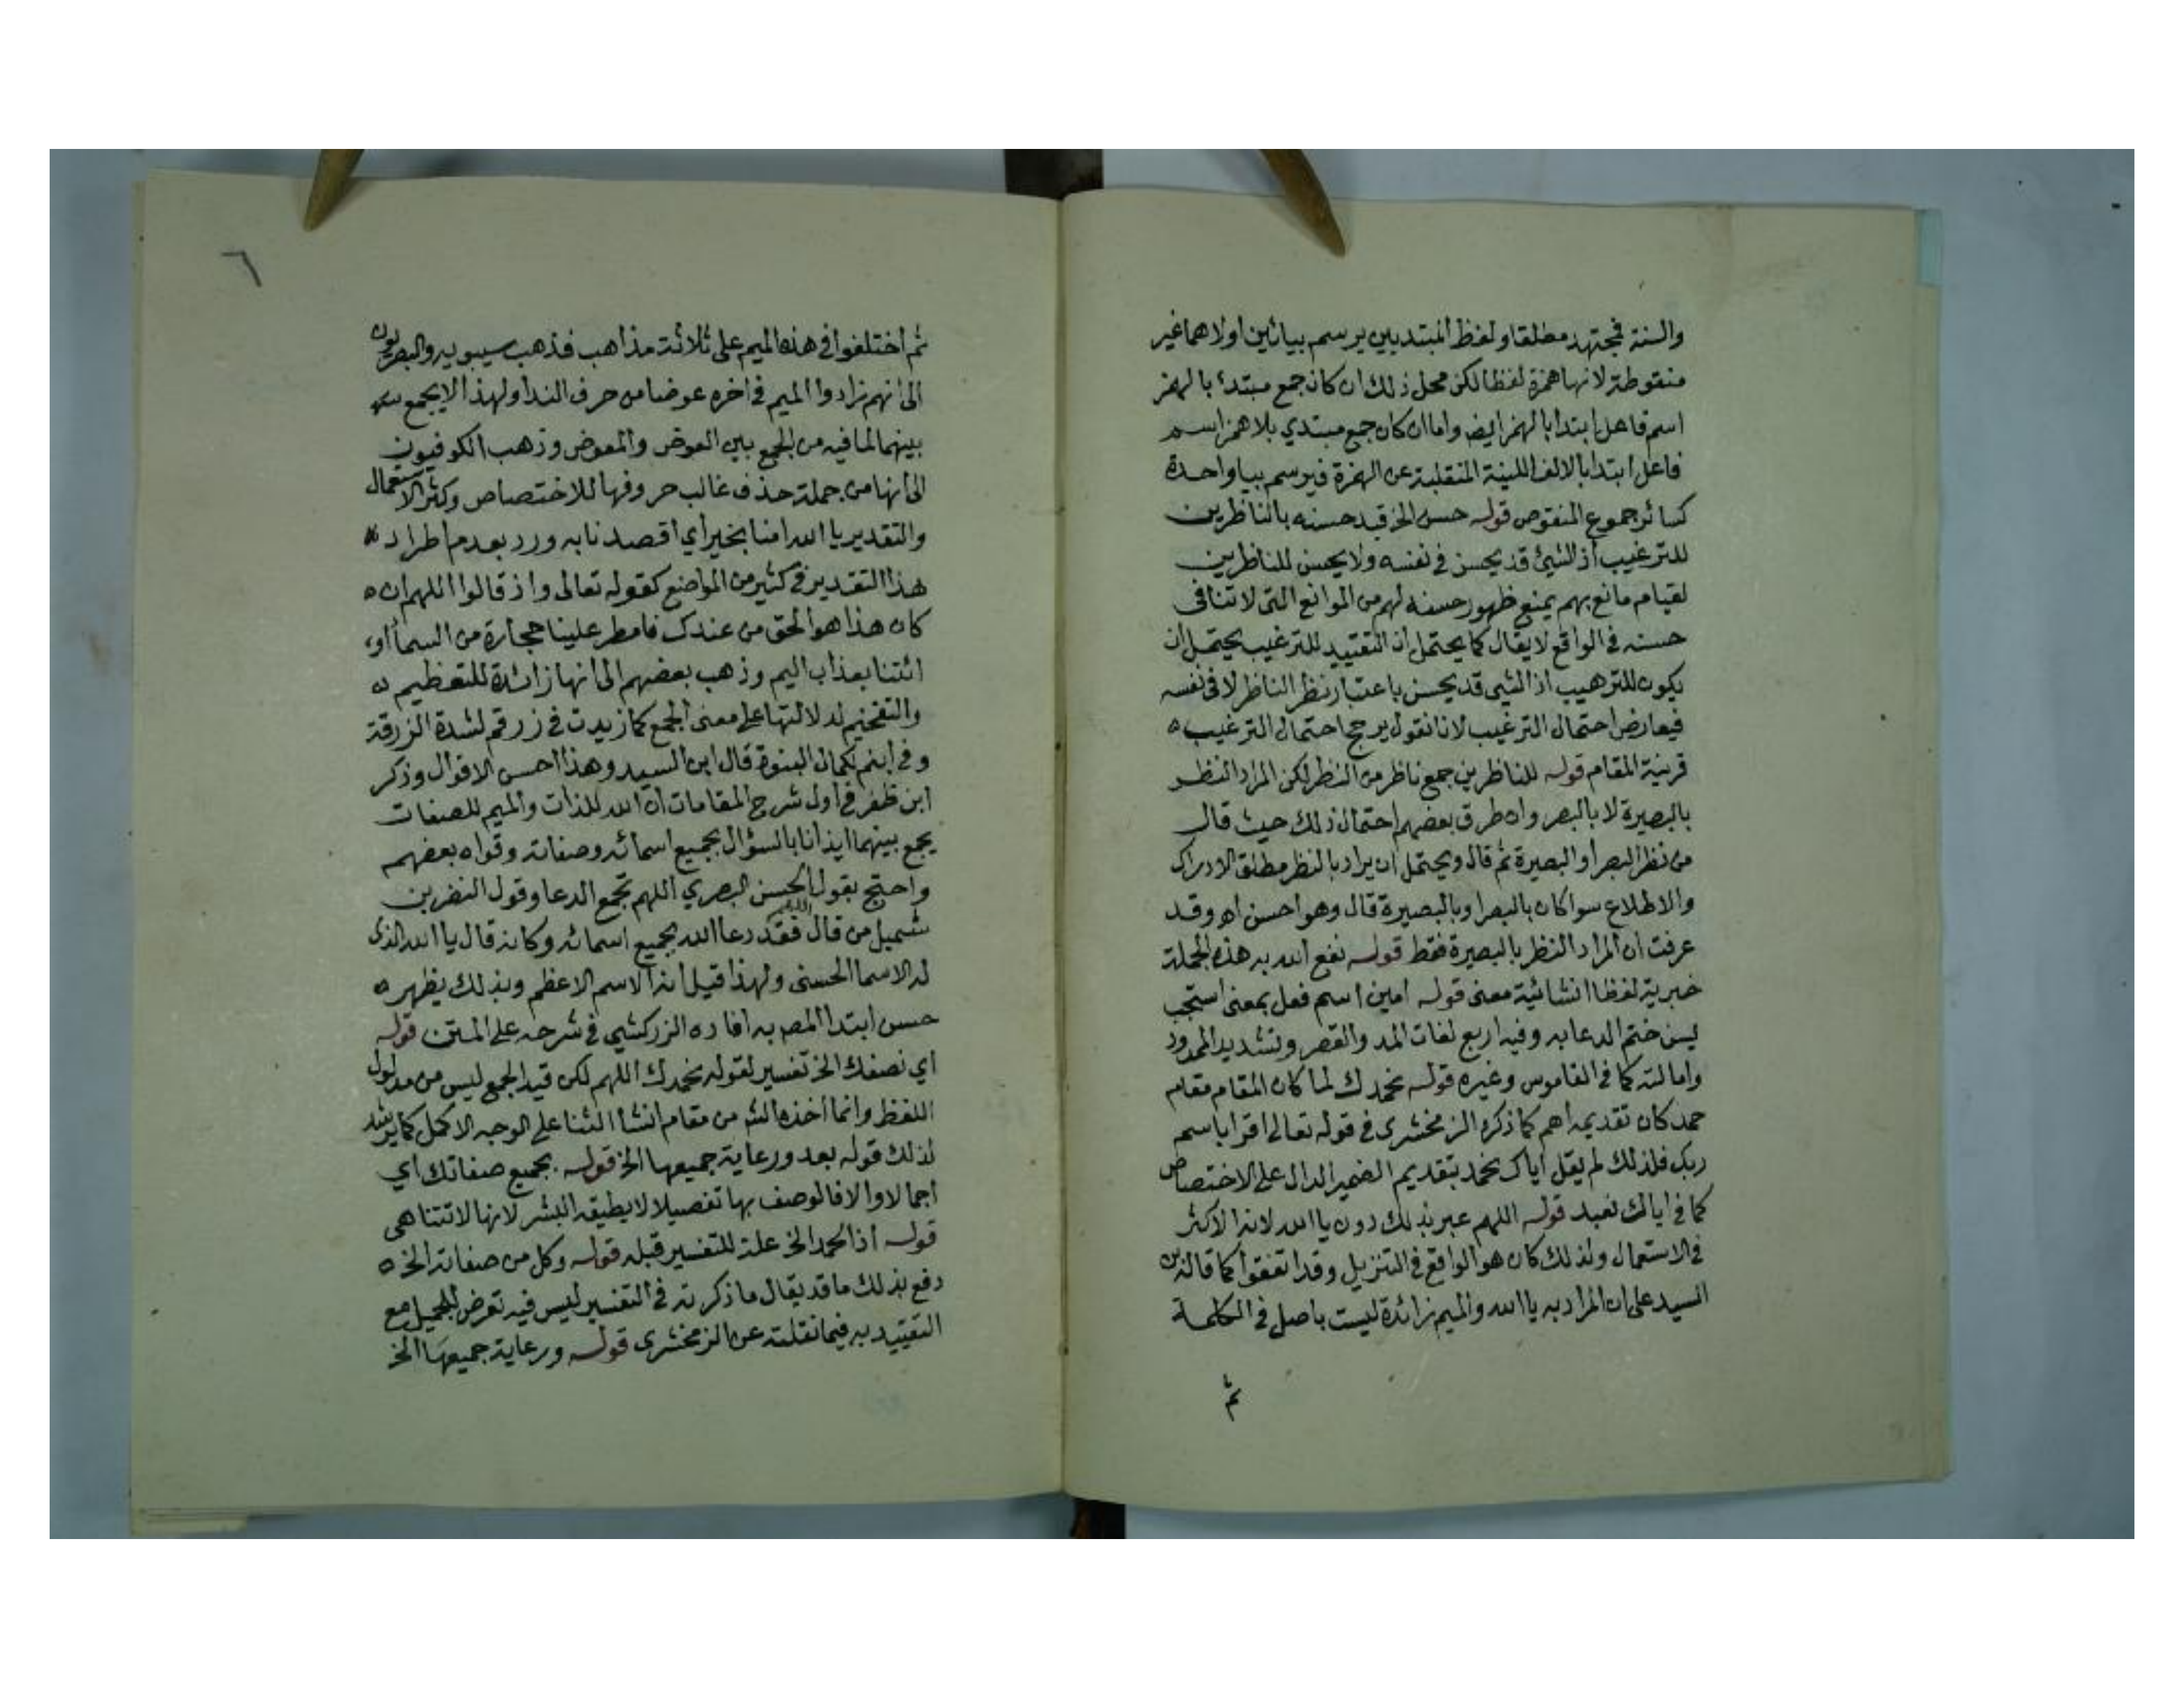 والسنة فمجتهد مطلقا ولفظ المبتدئين يرسم بيائين اولاهما غير
منقوطة لانها همزة لفظا لكن محل ذلك ان كان جمع مبتدء بالهمز
اسم فاعل ابتدا بالهمز ايضا واما ان كان جمع مبتدي بلا همز اسم
فاعل ابتدا بالالف اللينة المنقلبة عن الهمزة فيرسم بيا واحدة
كسائر جموع المنقوص قوله حسن الخ قيد حسنه بالناظرين
للترغيب اذ الشيئ قد يحسن في نفسه ولا يحسن للناظرين
لقيام مانع بهم يمنع ظهور حسنه لهم من الموانع التي لا تنافي
حسنه في الواقع لا يقال كما يحتمل ان التقييد للترغيب يحتمل ان
يكون للترهيب اذ الشيى قد يحسن باعتبار نظر الناظر لا في نفسه
فيعارض احتمال الترغيب لانا نقول يرجح احتمال الترغيب ه
قرينة المقام قوله للناظرين جمع ناظر من النظر لكن المراد النظر
بالبصيرة لا بالبصر وان طرق بعضهم احتمال ذلك حيث قال
من نظر البصر او البصيرة ثم قال ويحتمل ان يراد بالنظر مطلق الادراك
والاطلاع سوا كان بالبصر او بالبصيرة قال وهو احسن اه وقد
عرفت ان المراد النظر بالبصيرة فقط قوله نفع الله به هذه الجملة
خبرية لفظا انشائية معنى قوله امين اسم فعل بمعنى استجب
يسن ختم الدعا به وفيه اربع لغات المد والقصر وتشديد الممدود
وامالته كما في القاموس وغيره قوله نحمدك لما كان المقام مقام
حمد كان تقديمه اهم كما ذكره الزمخشرى في قوله تعالى اقرا باسم
ربك فلذلك لم يقل اياك نحمد بتقديم الضمير الدال على الاختصاص
كما في اياك نعبد قوله اللهم عبر بذلك دون يا الله لانه الاكثر
في الاستعمال ولذلك كان هو الواقع في التنزيل وقد اتفقوا كما قاله بن
السيد على ان المراد به يا الله والميم زائدة ليست باصل في الكلمة
ثم
٦
ثم اختلفوا في هذه الميم على ثلاثة مذاهب فذهب سيبويه والبصريون
الى انهم زادوا الميم في اخره عوضا من حرف الندا ولهذا لا يجمع
بينهما لما فيه من الجمع بين العوض والمعوض وذهب الكوفيون
الى انها من جملة حذف غالب حروفها للاختصاص وكثر الاستعمال
والتقدير يا الله امنا بخير اي اقصدنا به ورد بعدم اطراد
هذا التقدير في كثير من المواضع كقوله تعالى واذ قالوا اللهم ان ه
كان هذا هو الحق من عندك فامطر علينا حجارة من السما او
ائتنا بعذاب اليم وذهب بعضهم الى انها زائدة للتعظيم ه
والتفخيم لدلالتها على معنى الجمع كما زيدت في زرقم لشدة الزرقة
وفي ابنم لكمال البنوة قال ابن السيد وهذا احسن الاقوال وذكر
ابن ظفر في اول شرح المقامات ان الله للذات والميم للصفات
يجمع بينهما ايذانا بالسؤال بجميع اسمائه وصفاته وقواه بعضهم
واحتج بقول الحسن البصري اللهم تجمع الدعا وقول النضر بن
شميل من قال اللهم فقد دعا الله بجميع اسمائه وكانه قال يا الله الذى
له الاسما الحسنى ولهذا قيل انه الاسم الاعظم وبذلك يظهر ه
حسن ابتدا المص به افاده الزركشي في شرحه على المتن قوله
اي نصفك الخ تفسير لقوله نحمدك اللهم لكن قيد الجمع ليس من مدلول
اللفظ وانما اخذه الش من مقام انشا الثنا على الوجه الاكمل كما يرشد
لذلك قوله بعد ورعاية جميعها الخ قوله بجميع صفاتك اي
اجمالا والا فالوصف بها تفصيلا لا يطيقه البشر لانها لا تتناهى
قوله اذ الحمد الخ علة للتفسير قبله قوله وكل من صفاته الخ ه
دفع بذلك ما قد يقال ما ذكرته في التفسير ليس فيه تعرض للجميل مع
التقييد به فيما نقلته عن الزمخشرى قوله ورعاية جميعها الخ